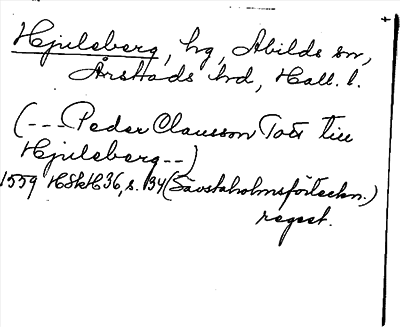 Hjuleberg, hg, Abilds sn,
Årstads hd, Hall. l.
(--- Peder Clausson Tott till
Hjuleberg --)
1559 HSkH 36, s. 134 (Sävstaholmsförteckn.)
regest.